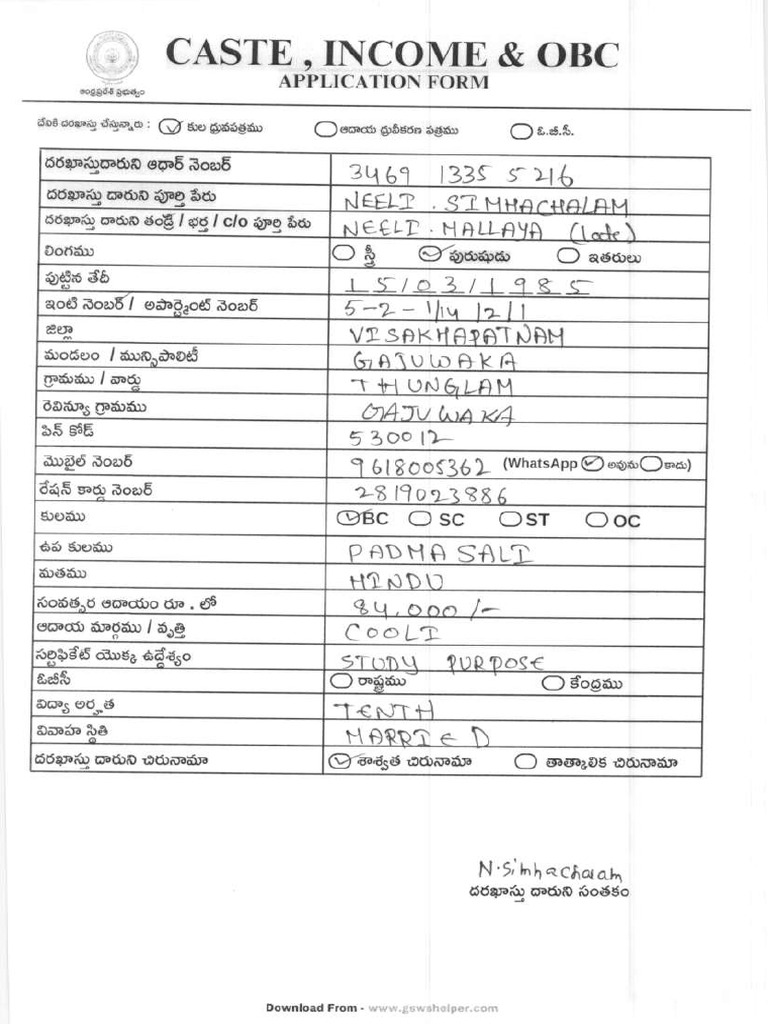 CASTE , INCOME & OBC
APPLICATION FORM
ఆంధ్రప్రదేశ్ ప్రభుత్వం
దేనికి దరఖాస్తు చేస్తున్నారు : కుల ధ్రువపత్రము ఆదాయ ధ్రువీకరణ పత్రము ఓ.బి.సి.
దరఖాస్తుదారుని ఆధార్ నెంబర్ 3469 1335 5216
దరఖాస్తు దారుని పూర్తి పేరు NEELI . SIMHACHALAM
దరఖాస్తు దారుని తండ్రి / భర్త / c/o పూర్తి పేరు NEELI . MALLAYA (late)
లింగము స్త్రీ పురుషుడు ఇతరులు
పుట్టిన తేదీ 15/03/1985
ఇంటి నెంబర్ / అపార్ట్మెంట్ నెంబర్ 5-2-1/14/2/1
జిల్లా VISAKHAPATNAM
మండలం / మున్సిపాలిటీ GAJUWAKA
గ్రామము / వార్డు THUNGLAM
రెవిన్యూ గ్రామము GAJUWAKA
పిన్ కోడ్ 530012
మొబైల్ నెంబర్ 9618005362 (WhatsApp అవును కాదు)
రేషన్ కార్డు నెంబర్ 2819023886
కులము BC SC ST OC
ఉప కులము PADMASALI
మతము HINDU
సంవత్సర ఆదాయం రూ . లో 84,000/-
ఆదాయ మార్గము / వృత్తి COOLI
సర్టిఫికేట్ యొక్క ఉద్దేశ్యం STUDY PURPOSE
ఓబీసీ రాష్ట్రము కేంద్రము
విద్యా అర్హత TENTH
వివాహ స్థితి MARRIED
దరఖాస్తు దారుని చిరునామా శాశ్వత చిరునామా తాత్కాలిక చిరునామా
N.Simhachalam
దరఖాస్తు దారుని సంతకం
Download From - www.gswshelper.com